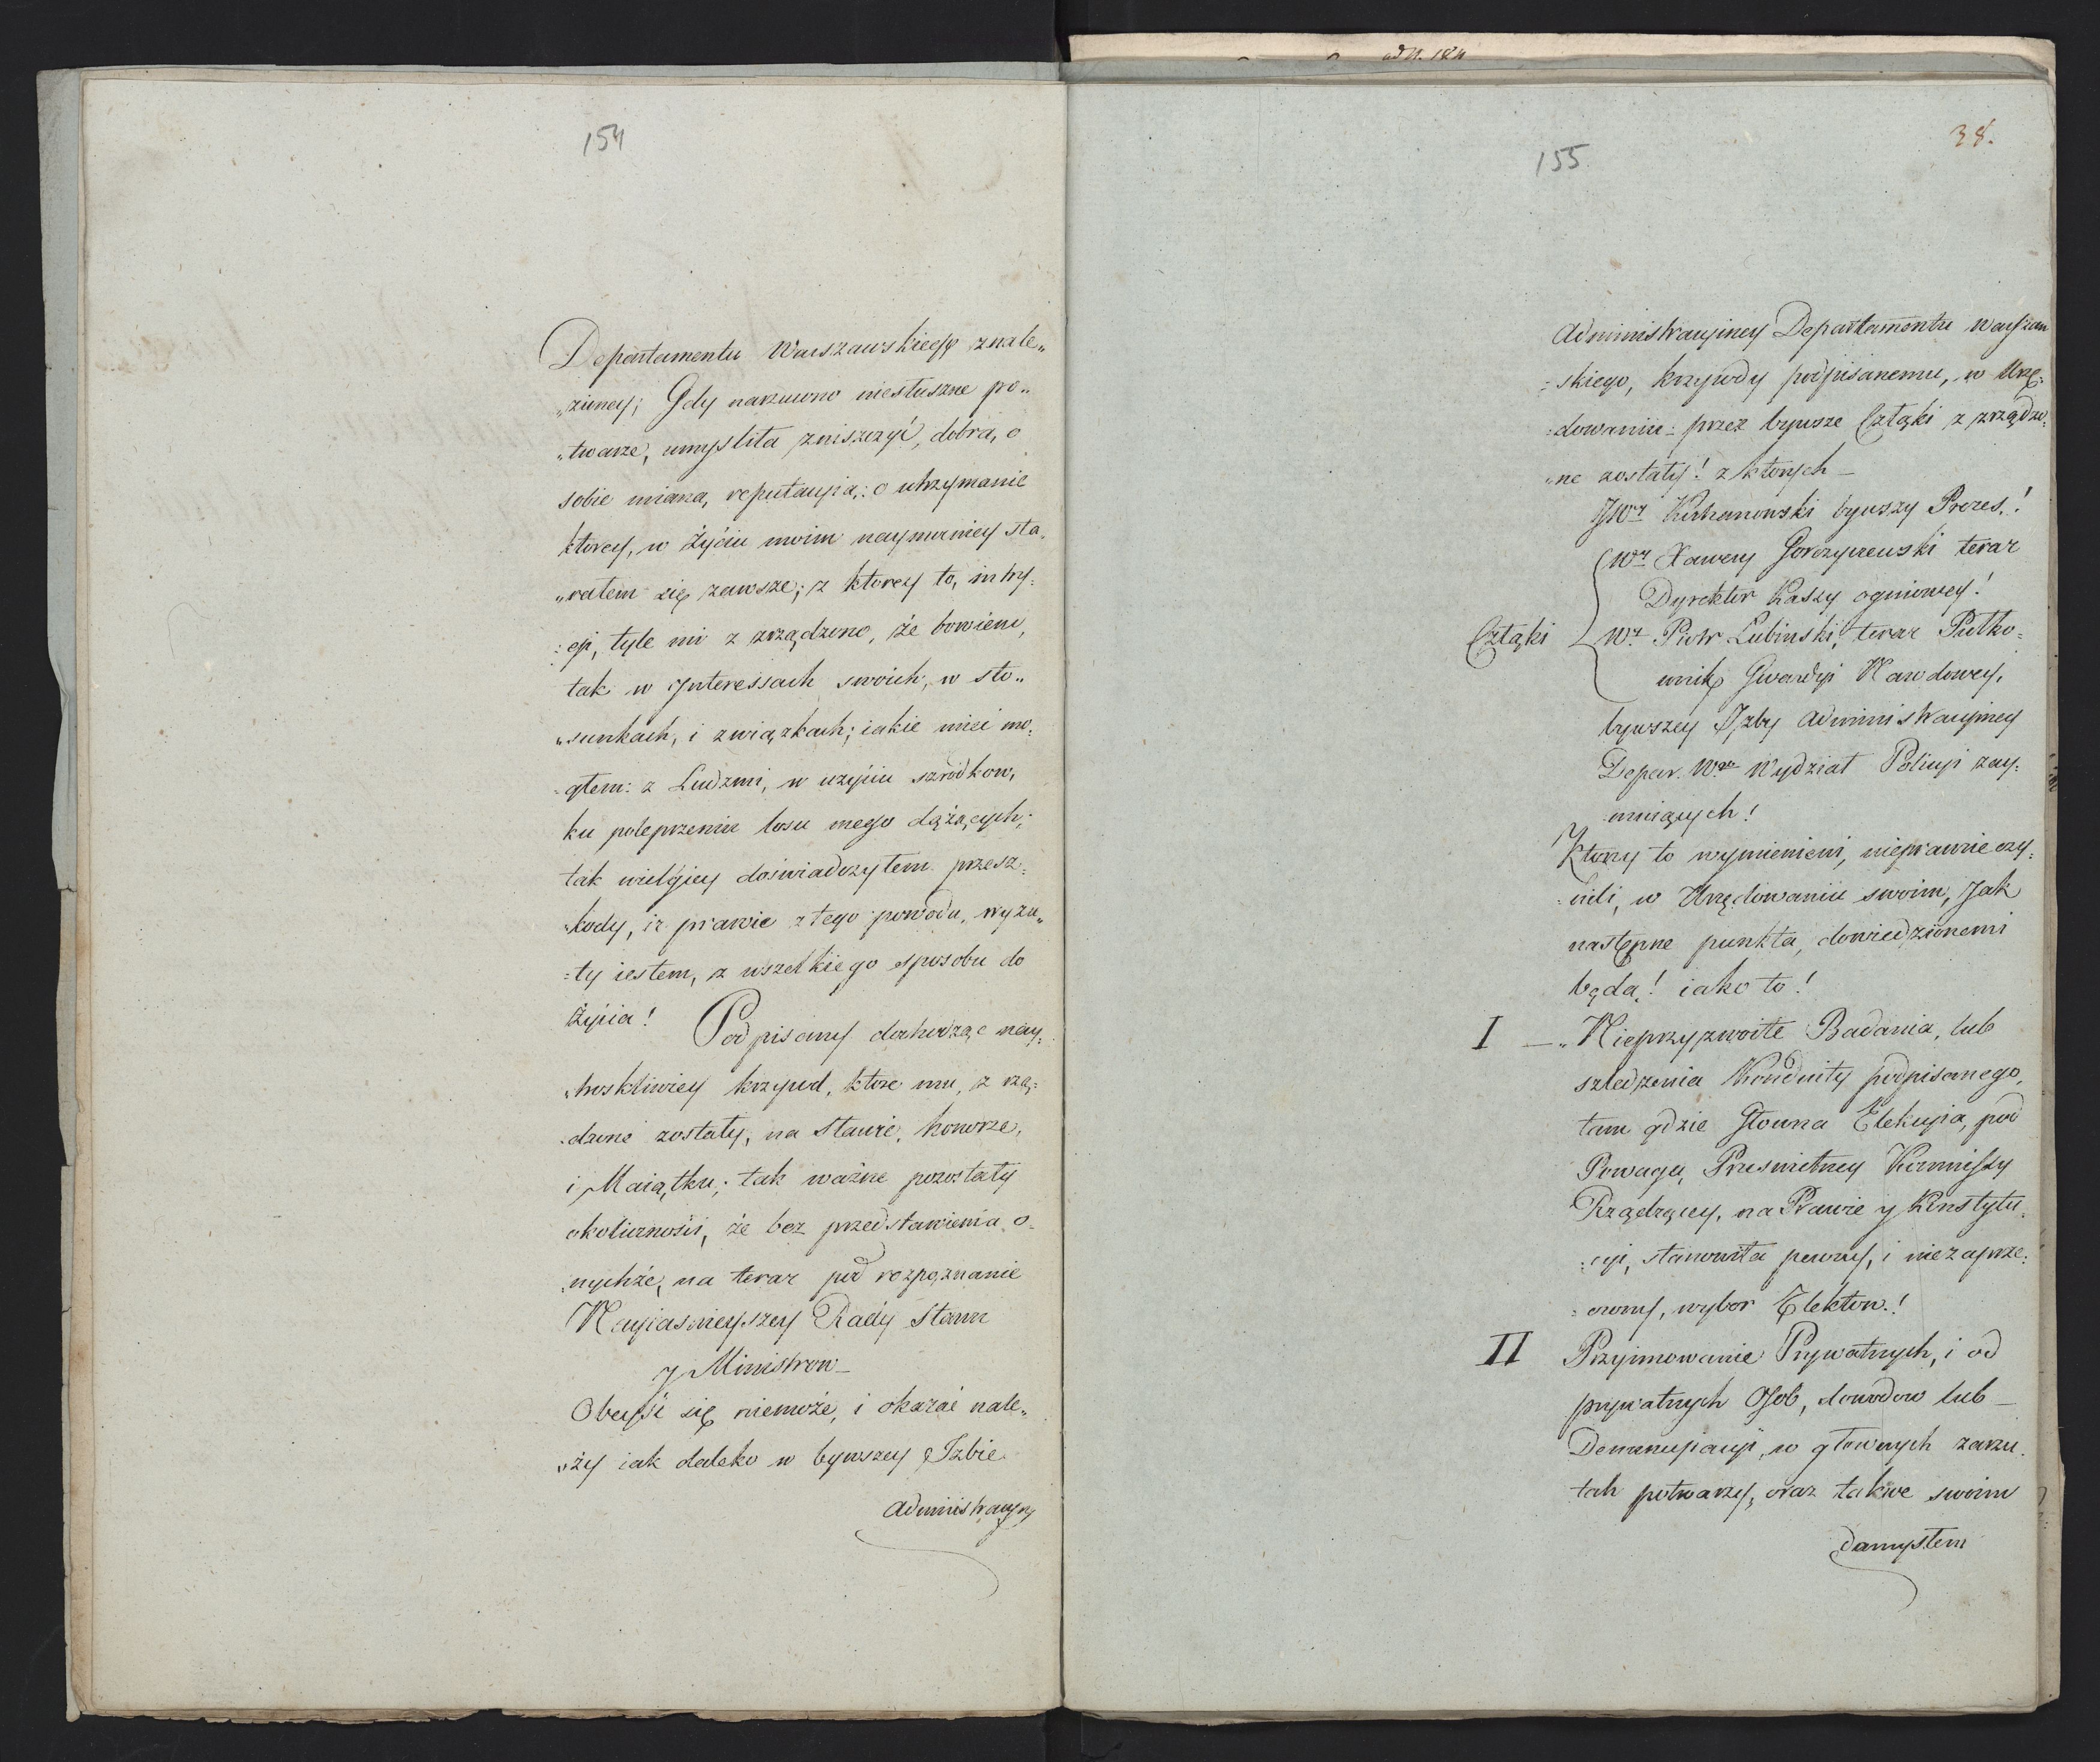 154
Departamentu Warszawskiego znale„
„zioney; Gdy narzuwno niesłuszne po„
„twarze, umysliła zniszczyć, dobrą, o
sobie mianą, reputacyią,: o utrzymanie
ktorey, w Życiu moim naymocniey sta„
„rałem się zawsze; z ktorey to, intry:
:gi, tyle mi z rządzono, że bowiem,
tak w Jnteressach swoich, w sto„
„sunkach, i związkach; iakie mieć mo:
:głem: z Ludzmi, w użyciu szrodkow,
ku polepszeniu losu mego dążących;
tak wielgiey doświadczyłem przesz:
:kody, iż prawie z tego powodu, wyzu„
:ty iestem, z wszelkiego sposobu do
Życia! Podpisany dochodząc nay:
„troskliwiey krzywd, ktore mu, z rzą:
:dzone zostały, na Sławie, honorze,
i Maiątku; tak ważne pozostały
okoliczności, że bez przedstawienia o:
:nychże, na teraz pod rozpoznanie
Nayiasnieyszey Rady Stanu
y Ministrow
Obeyść się niemoże, i okazać nale„
„ży iak daleko w bywszey Izbie
Administracyiny
ad N. 184
38.
155
Administracyiney Departamentu Warszaw
:skiego, krzywdy podpisanemu, w Urzę:
:dowaniu: przez bywsze Człąki z rządzo:
„ne zostały! z ktorych
JWr Kochanowski bywszy Prezes.!
Wr Xawery Gorczyczewski teraz
Dyrektor Kassy ogniowey!
Człąki
Wr Piotr Lubinski, teraz Pułko:
wnik Gwardyi Narodowey,
bywszey Jzby Administracyiney
Depar. Wgo Wydział Policyi zay:
:mniących!
Ktorzy to wymienieni, nieprawnie czy:
:nili, w Urzędowaniu swoim, Jak
następne punkta, dowiedzionemi
będą! iako to!
I — „Nieprzyzwoite Badania, lub
szledzenia Konduity podpisanego,
tam gdzie Głowna Elekcyia, pod
Powagą, Prześwietney Kommissyi
Rządzącey, na Prawie y Konstytu:
:cyi, stanowiła pewny, i niezaprze:
:czony, wybor Elektow.!
II Przyimowanie Prywatnych, i od
prywatnych Osob, dowodow lub
Denuncyiacyi, w głownych zarzu:
tach potwarzy, oraz takowe swoim
domysłem